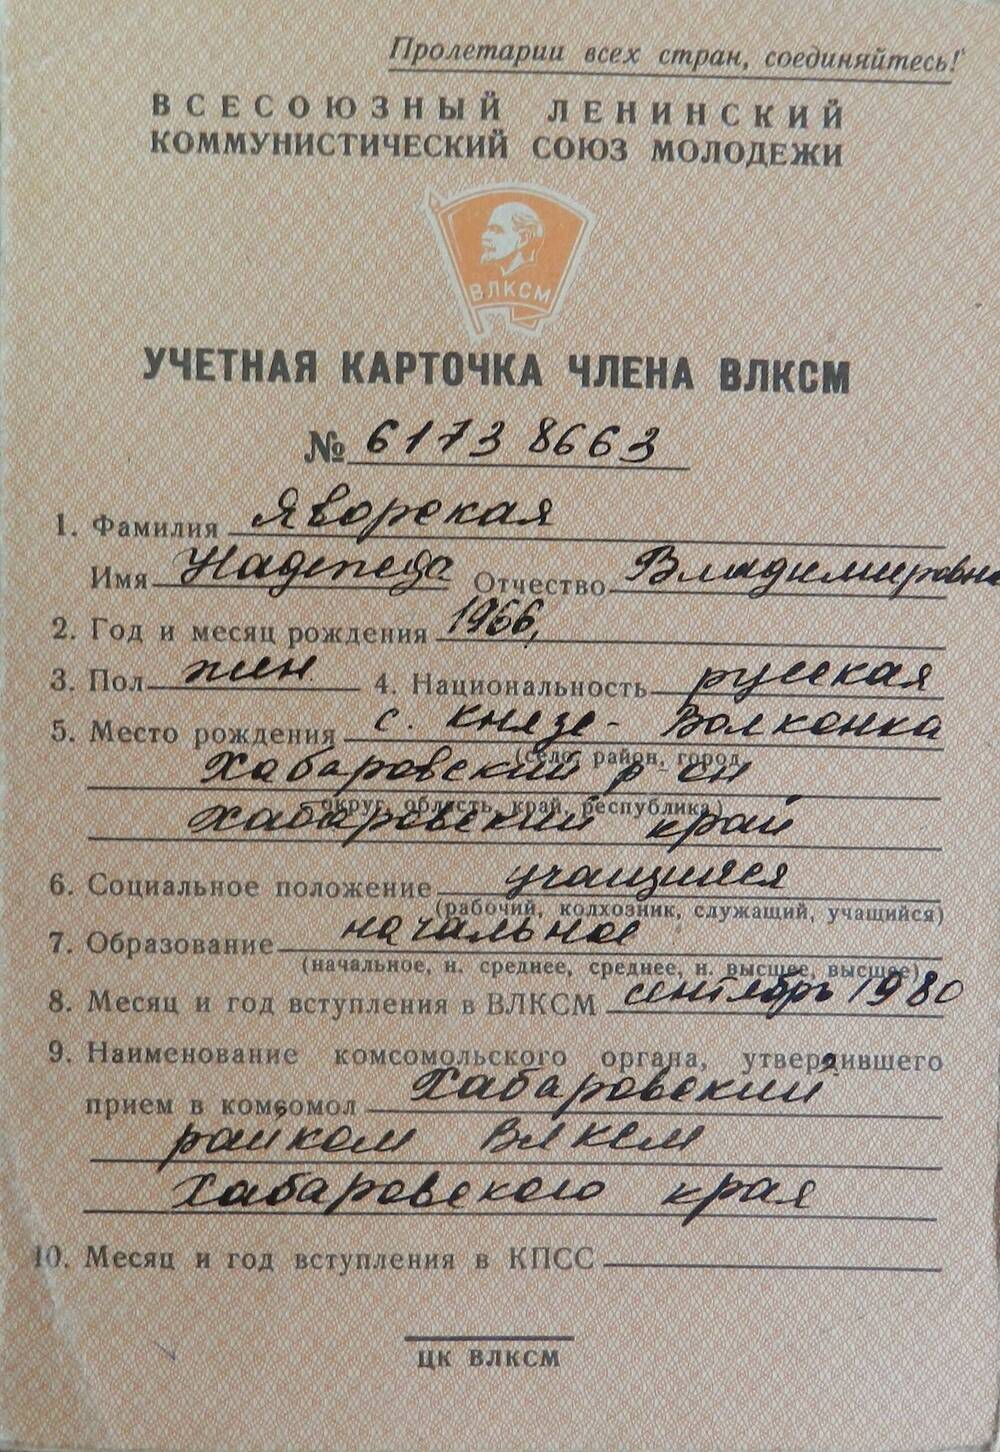 Пролетарии всех стран, соединяйтесь!
ВСЕСОЮЗНЫЙ ЛЕНИНСКИЙ
КОММУНИСТИЧЕСКИЙ СОЮЗ МОЛОДЕЖИ
ВЛКСМ
УЧЕТНАЯ КАРТОЧКА ЧЛЕНА ВЛКСМ
№ 61738663
1. Фамилия Яворская
Имя Надежда Отчество Владимировна
2. Год и месяц рождения 1966,
3. Пол жен. 4. Национальность русская
5. Место рождения с. Князе-Волконка
(село, район, город,
Хабаровский р-он
округ, область, край, республика)
Хабаровский край
6. Социальное положение учащийся
(рабочий, колхозник, служащий, учащийся)
7. Образование начальное
(начальное, н. среднее, среднее, н. высшее, высшее)
8. Месяц и год вступления в ВЛКСМ сентябрь 1980
9. Наименование комсомольского органа, утвердившего
прием в комсомол Хабаровский
райком ВЛКСМ
Хабаровского края
10. Месяц и год вступления в КПСС
ЦК ВЛКСМ